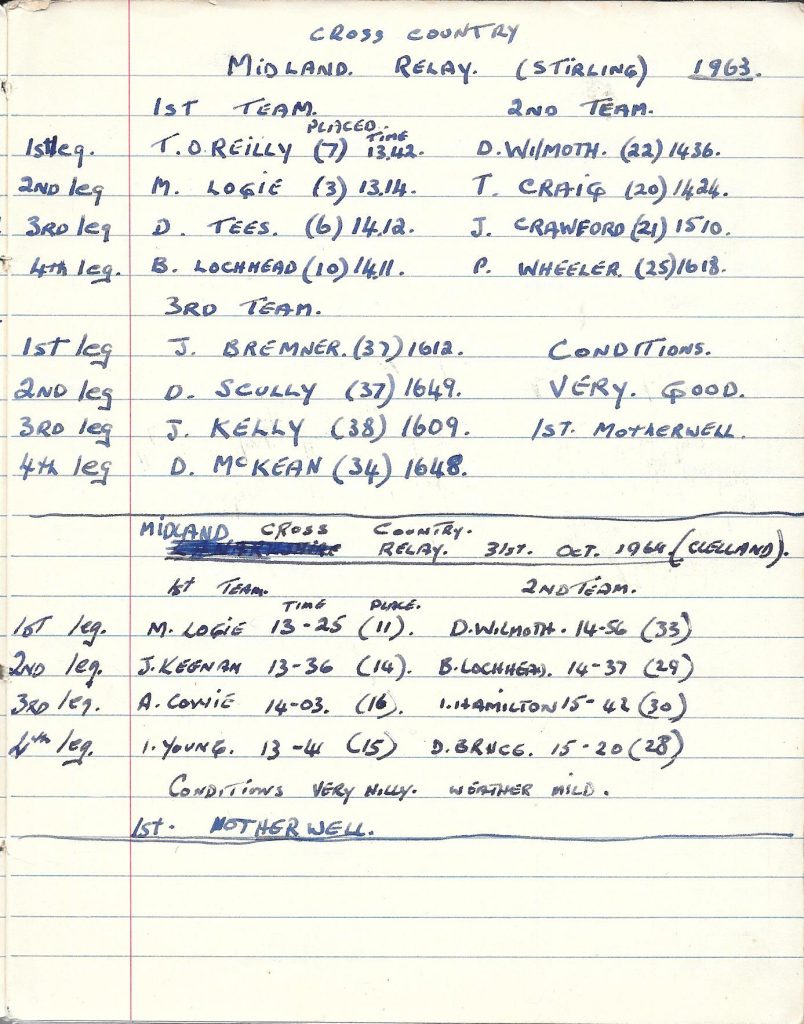 CROSS COUNTRY
MIDLAND. RELAY. (STIRLING) 1963.
1ST TEAM. 2ND TEAM.
PLACED. TIME
1st leg. T. O. REILLY (7) 13.42. D. WILMOTH. (22) 1436.
2ND leg M. LOGIE (3) 13.14. T. CRAIG (20) 1424.
3RD leg D. TEES. (6) 14.12. J. CRAWFORD (21) 1510.
4th leg. B. LOCHHEAD (10) 14.11. P. WHEELER. (25) 1618.
3RD TEAM.
1ST leg J. BREMNER. (37) 1612. CONDITIONS.
2ND leg D. SCULLY (37) 1649. VERY. GOOD.
3RD leg J. KELLY (38) 1609. 1ST. MOTHERWELL.
4th leg D. McKEAN (34) 1648.
MIDLAND. CROSS COUNTRY.
RELAY. 31st. OCT. 1964. (CLELLAND).
1st TEAM. 2ND TEAM.
TIME PLACE.
1ST leg. M. LOGIE 13-25 (11). D. WILMOTH. 14-56 (33)
2ND leg. J. KEENAN 13-36 (14). B. LOCHHEAD. 14-37 (29)
3RD leg. A. COWIE 14-03. (16). I. HAMILTON 15-42 (30)
4th leg. I. YOUNG. 13-41 (15) D. BRUCE. 15-20 (28)
CONDITIONS VERY HILLY. WEATHER MILD.
1st. MOTHERWELL.